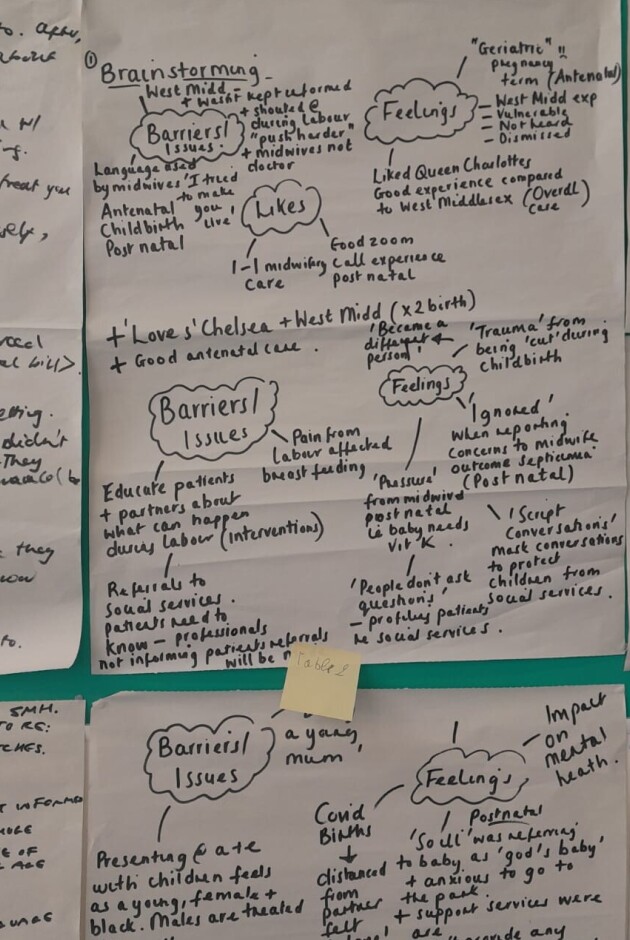 to. After,
about
W/
treat you
road
They
they
now
to.
①
Brainstorming -
West Midd -
+ wasn't kept informed
+ shouted @
during labour
"push harder"
+ midwives not
doctor
Barriers/
Issues.
Language used
by midwives 'I tried
to make
you
live'
Antenatal
Childbirth
Post natal
Likes
1-1 midwifery
care
Good zoom
call experience
post natal
"Geriatric" !!
pregnancy
term (Antenatal)
Feelings
- West Midd exp
- Vulnerable
- Not heard
- Dismissed
Liked Queen Charlottes
Good experience compared
to West Middlesex (Overall
care)
+ 'Loves' Chelsea + West Midd (x2 birth)
+ Good antenatal case.
Barriers/
Issues
Pain from
labour affected
breast feeding
Educate patients
+ partners about
what can happen
during labour (interventions)
Referrals to
Social services.
patients need to
know - professionals
not informing patients referrals
will be
'Became a
different
person'
'Trauma' from
being 'cut' during
childbirth
Feelings
'Ignored'
when reporting
concerns to midwife
outcome septicemia
(Post natal)
'Pressure'
from midwives
post natal
ie baby needs
Vit K.
'Script
Conversations'
mask conversations
to protect
children from
social services.
'People don't ask
questions'
- profiling patients
re social services.
Table 2
Barriers/
Issues
a young
mum'
Presenting @ a+e
with children feels
as a young, female +
black. Males are treated
Feelings
Impact
on
mental
heath.
Covid
Births
distanced
from
partner
felt
Postnatal
was referring
to baby as 'god's baby'
+ anxious to go to
the park
+ support services were
are
any
SMH.
TO RE:
INFORMED
OF
AGE